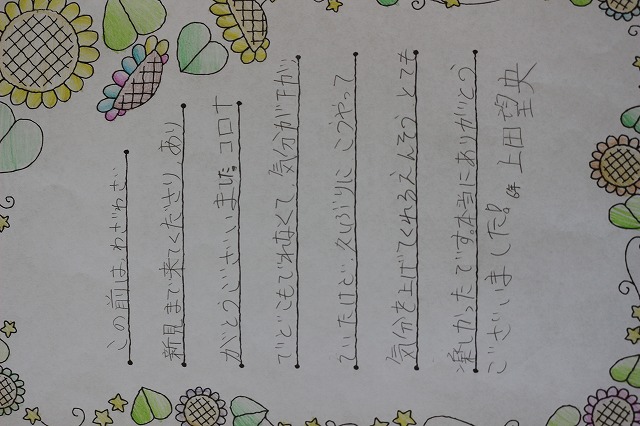 この前は、わざわざ
新見まで来てくださり、あり
がとうございました。コロナ
でどこもでれなくて、気分が下がっ
ていたけど、久しぶりに こうやって
気分を上げてくれるえんそう、とても
楽しかったです。本当にありがとう
ございました! 上田